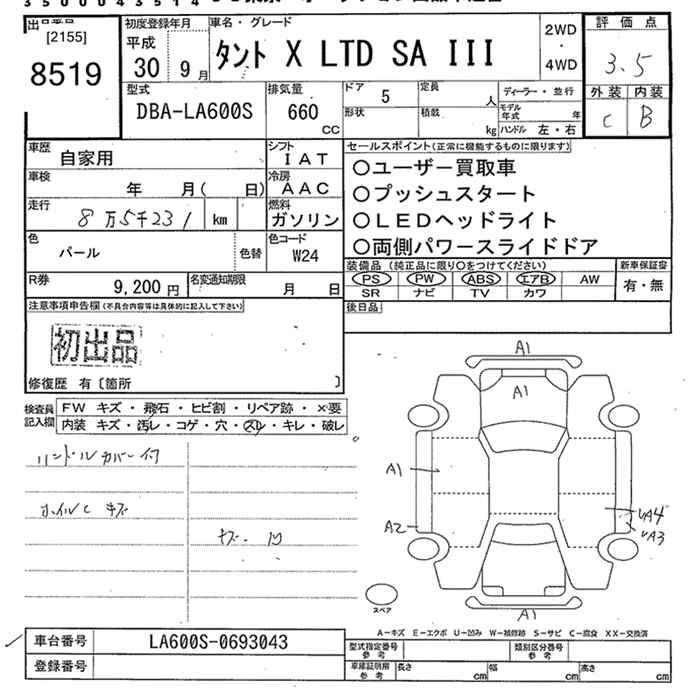 出品番号
[2155]
8519
初度登録年月
平成
30 9月
車名・グレード
タント X LTD SA III
2WD
・
4WD
評価点
3.5
外装 内装
C B
型式
DBA-LA600S
排気量
660
CC
ドア
5
形状
定員
人
積載
kg
ディーラー・並行
モデル年式 年
ハンドル 左・右
車歴
自家用
シフト
IAT
車検
年 月( 日)
冷房
AAC
走行
8万5千231 km
燃料
ガソリン
色
パール
色替
色コード
W24
R券
9,200 円
名変通知期限
月 日
セールスポイント(正常に機能するものに限ります)
○ユーザー買取車
○プッシュスタート
○LEDヘッドライト
○両側パワースライドドア
装備品(純正品に限り○をつけてください)
PS PW ABS エアB AW
SR ナビ TV カワ
新車保証書
有・無
後日品
注意事項申告欄(不具合内容等は具体的に記入して下さい)
初出品
修復歴 有〔箇所 〕
検査員記入欄
FW キズ・飛石・ヒビ割・リペア跡・X要
内装 キズ・汚レ・コゲ・穴・スレ・キレ・破レ
ハンドルカバー付
ホイルC キズ
キズ. 凹
A1
A1
A1
A2
UA4
UA3
A1
スペア
A-キズ E-エクボ U-凹み W-補修跡 S-サビ C-腐食 XX-交換済
車台番号
LA600S-0693043
登録番号
型式指定番号 参考
類別区分番号 参考
車庫証明用 参考
長さ cm
幅 cm
高さ cm